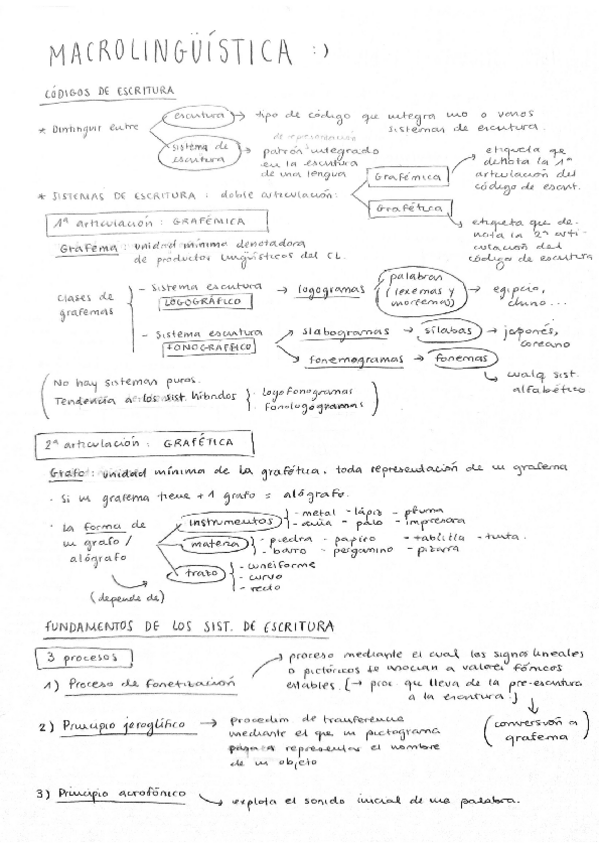 MACROLINGÜÍSTICA :)
CÓDIGOS DE ESCRITURA
* Distinguir entre
escritura → tipo de código que integra uno o varios
sistemas de escritura.
sistema de
escritura → patrón de representación integrado
en la escritura
de una lengua
* SISTEMAS DE ESCRITURA : doble articulación:
Grafémica
etiqueta que
denota la 1ª
articulación del
código de escrit.
Grafética
etiqueta que de-
nota la 2ª arti-
culación del
código de escritura
1ª articulación : GRAFÉMICA
Grafema : unidad mínima denotadora
de productos lingüísticos del CL.
clases de
grafemas
- Sistema escritura
LOGOGRÁFICO → logogramas → palabras
(lexemas y
morfemas) → egipcio,
chino...
- Sistema escritura
FONOGRÁFICO
silabogramas → sílabas → japonés,
coreano
fonemogramas → fonemas
cualq sist.
alfabético
(No hay sistemas puros.
Tendencia a los sist. híbridos } · logofonogramas
· fonologogramas)
2ª articulación : GRAFÉTICA
Grafo : unidad mínima de la grafética, toda representación de un grafema
· Si un grafema tiene + 1 grafo = alógrafo.
· La forma de
un grafo /
alógrafo
(depende de)
instrumentos { - metal - lápiz - pluma
- palo - impresora
materia { - piedra - papiro - tablilla - tinta.
- barro - pergamino - pizarra
trazo { - cuneiforme
- curvo
- recto
FUNDAMENTOS DE LOS SIST. DE ESCRITURA
3 procesos
1) Proceso de fonetización → proceso mediante el cual los signos lineales
o pictóricos se asocian a valores fónicos
estables. [→ proc. que lleva de la pre-escritura
a la escritura.]
(conversión a
grafema)
2) Principio jeroglífico → procedim de transferencia
mediante el que un pictograma
pasa a representar el nombre
de un objeto
3) Principio acrofónico → explota el sonido inicial de una palabra.